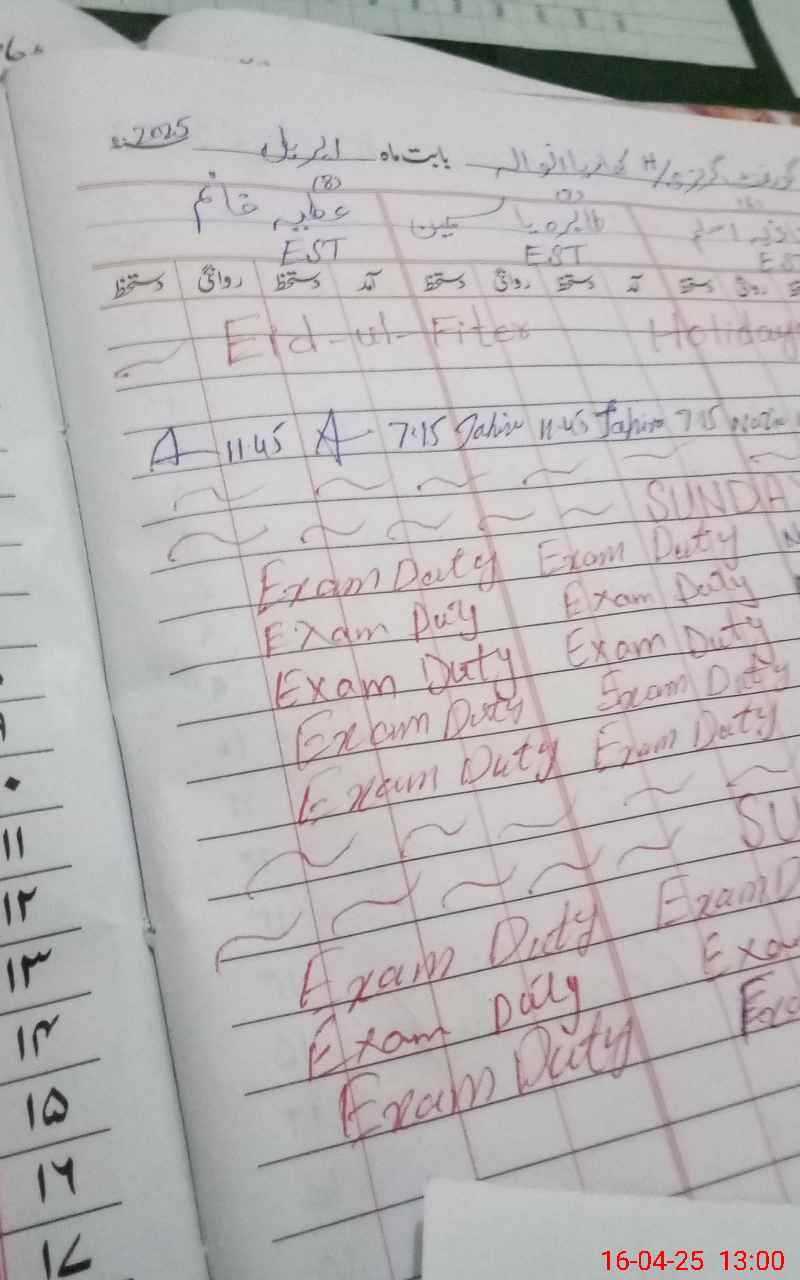 بابت ماہ اپریل 2025ء
(8) (7)
عطیہ خانم طاہرہ یاسمین
EST EST
آمد دستخط روانگی دستخط آمد دستخط روانگی دستخط
Eid-ul-Fiter Holiday
A 11.45 A 7:15 Tahira 11.45 Tahira 7.15
SUNDA
Exam Duty Exam Duty
Exam Duty Exam Duty
Exam Duty Exam Duty
Exam Duty Exam Duty
Exam Duty Exam Duty
SU
Exam Duty Exam D
Exam Duty Exa
Exam Duty
۱۱
۱۲
۱۳
۱۴
۱۵
۱۶
۱۷
16-04-25 13:00